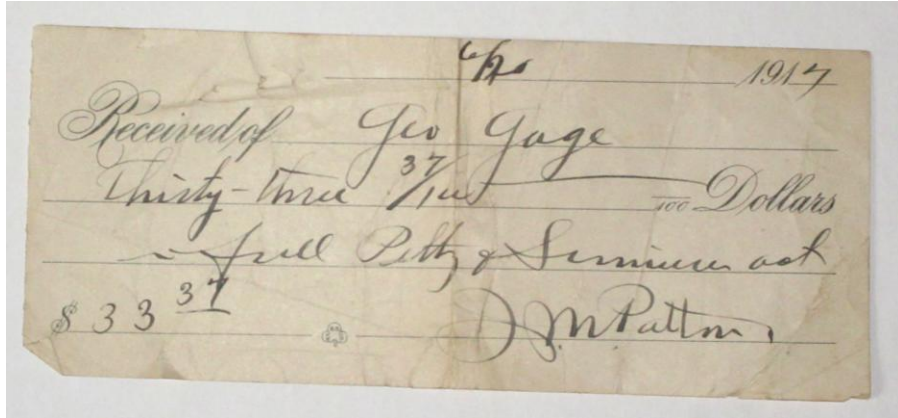 6/20 1917
Received of Geo Gage
Thirty-three 37/100 Dollars
in full Petty & act
$ 33 37 J.M. Patton